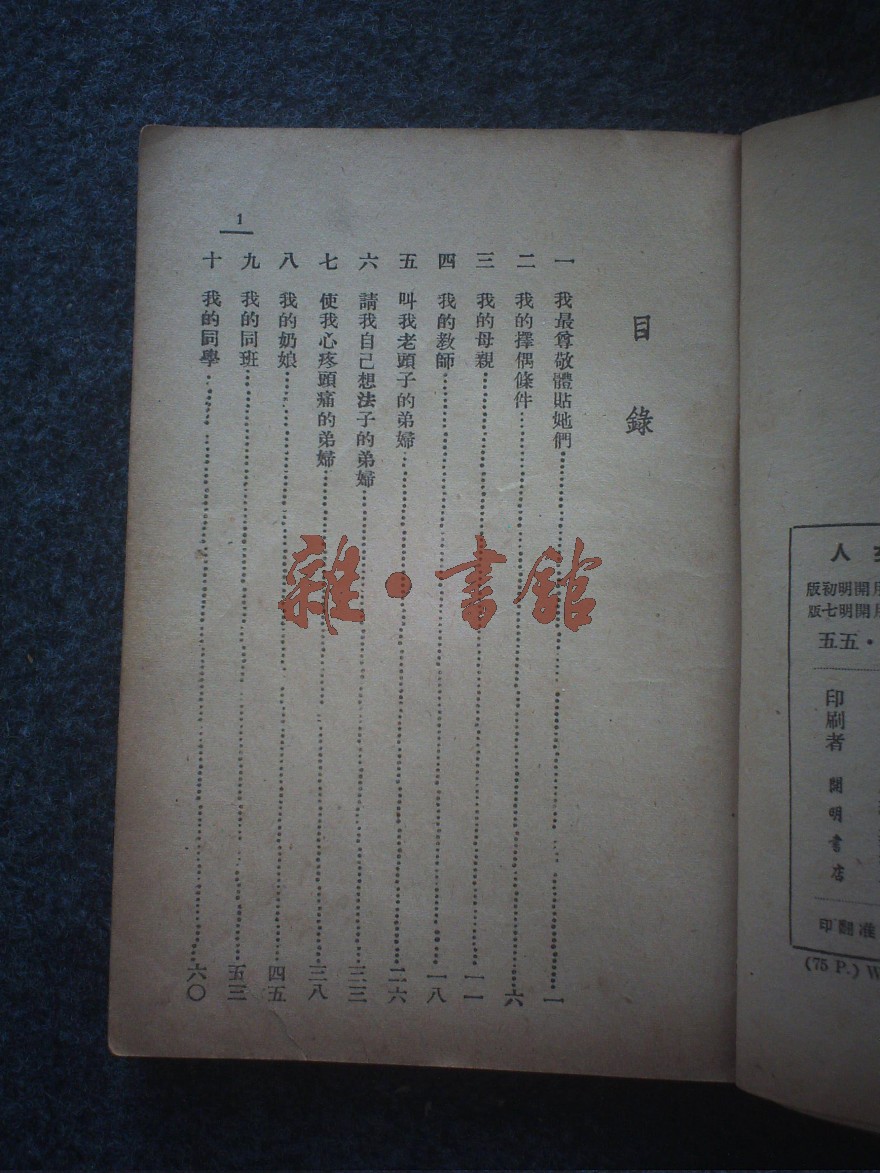 人
版初明開月
版七明開月
五五・
印刷者
開明書店
印翻准
(75 P.) W
目錄
一 我最尊敬體貼她們 一
二 我的擇偶條件 六
三 我的母親 一一
四 我的教師 一八
五 叫我老頭子的弟婦 二六
六 請我自己想法子的弟婦 三三
七 使我心疼頭痛的弟婦 三八
八 我的奶娘 四五
九 我的同班 五三
十 我的同學 六〇
1
雜・書館